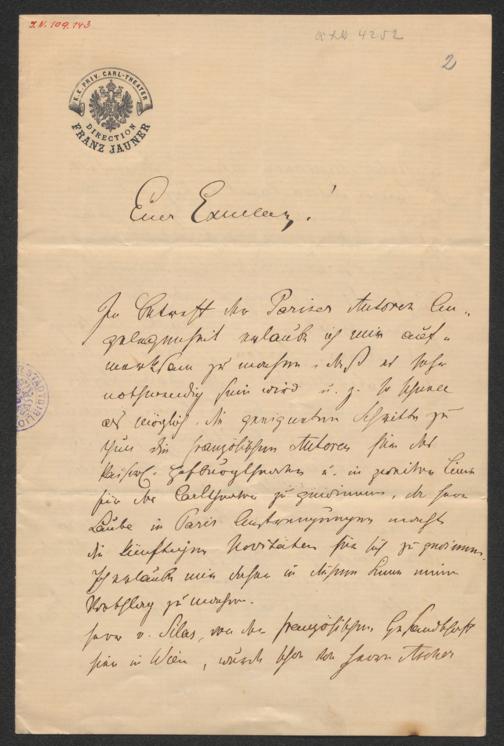 I.N. 109.743
2
K.K. PRIV. CARL-THEATER
DIRECTION
FRANZ JAUNER
Euer Excellenz!
In Betreff der Pariser Autoren An-
gelegenheit erlaube ich mir auf-
merksam zu machen, daß es sehr
nothwendig sein wird u. z. so schnell
als möglich die geeigneten Schritte zu
thun die französischen Autoren für das
Kaiserl. Hofburgtheater u. in zweiter Linie
für das Carltheater zu gewinnen, da Herr
Laube in Paris Anstrengungen macht
die künftigen Novitäten für sich zu gewinnen.
Ich erlaube mir daher in diesem Sinne einen
Vorschlag zu machen.
Herr v. Silas, von der französischen Gesandtschaft
hier in Wien, wurde schon von Herrn Ascher